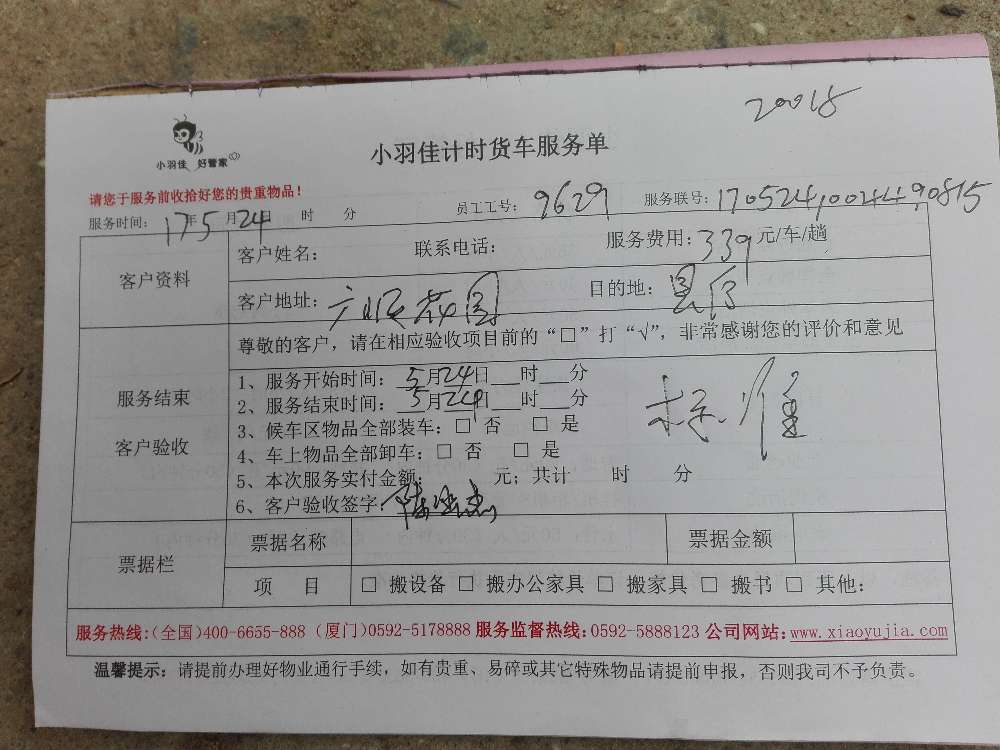 20018
小羽佳 好管家
小羽佳计时货车服务单
请您于服务前收拾好您的贵重物品！
服务时间： 17年5月24日 时 分 员工工号： 9629 服务联号：17052410024490815
客户资料
客户姓名： 联系电话： 服务费用：339元/车/趟
客户地址： 花园 目的地：
尊敬的客户，请在相应验收项目前的“□”打“√”，非常感谢您的评价和意见
服务结束
客户验收
1、服务开始时间：5月24日___时___分
2、服务结束时间：5月24日___时___分
3、候车区物品全部装车：□ 否 □ 是
4、车上物品全部卸车：□ 否 □ 是
5、本次服务实付金额： 元；共计 时 分
6、客户验收签字：
标准
票据栏
票据名称 票据金额
项 目 □ 搬设备 □ 搬办公家具 □ 搬家具 □ 搬书 □ 其他：
服务热线：(全国)400-6655-888 (厦门)0592-5178888 服务监督热线：0592-5888123 公司网站：www.xiaoyujia.com
温馨提示：请提前办理好物业通行手续，如有贵重、易碎或其它特殊物品请提前申报，否则我司不予负责。